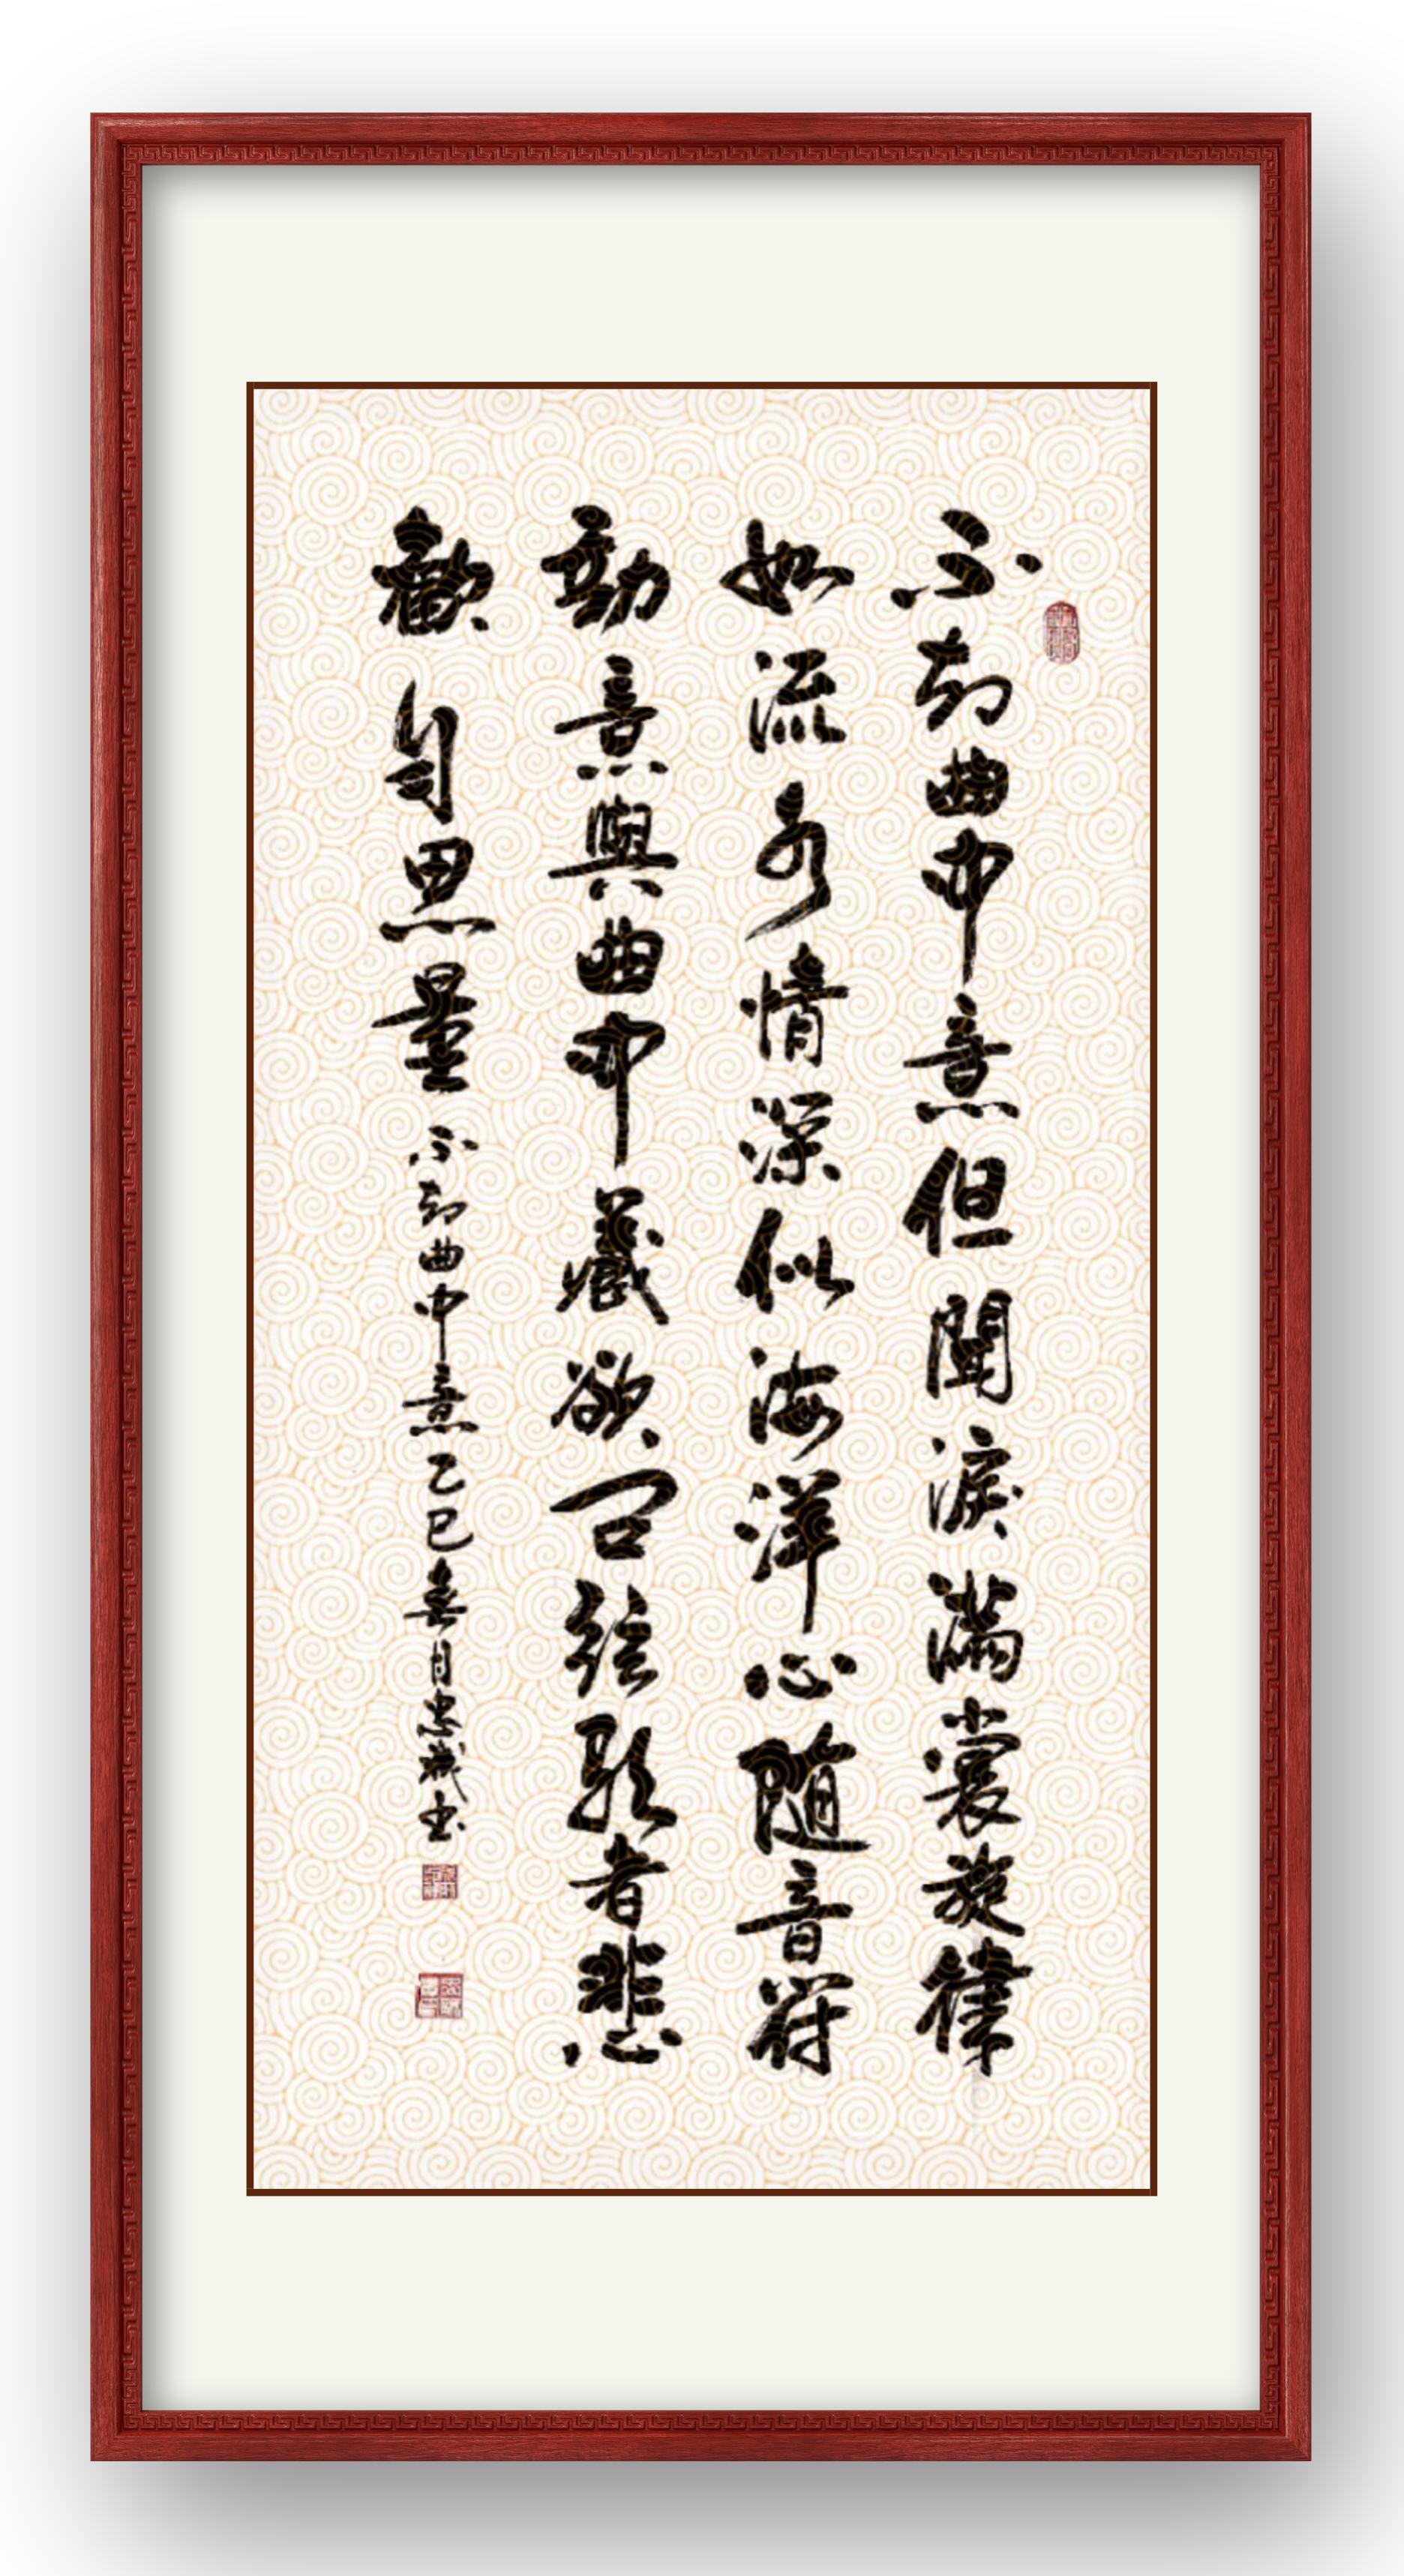 不知曲中意但聞淚滿裳旋律
如流水情深似海洋心隨音符
動意與曲中藏欲問絃歌者悲
歡自思量 不知曲中意乙巳春月忠誠书